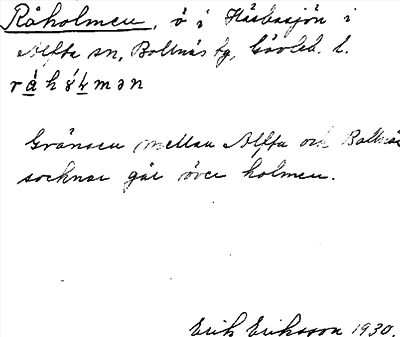 Råholmen, ö i Håbosjön i
Alfta sn, Bollnäs tg, Gävleb. l.
råhólmən
Gränsen mellan Alfta och Bollnäs
socknar går över holmen.
Erik Eriksson 1930.